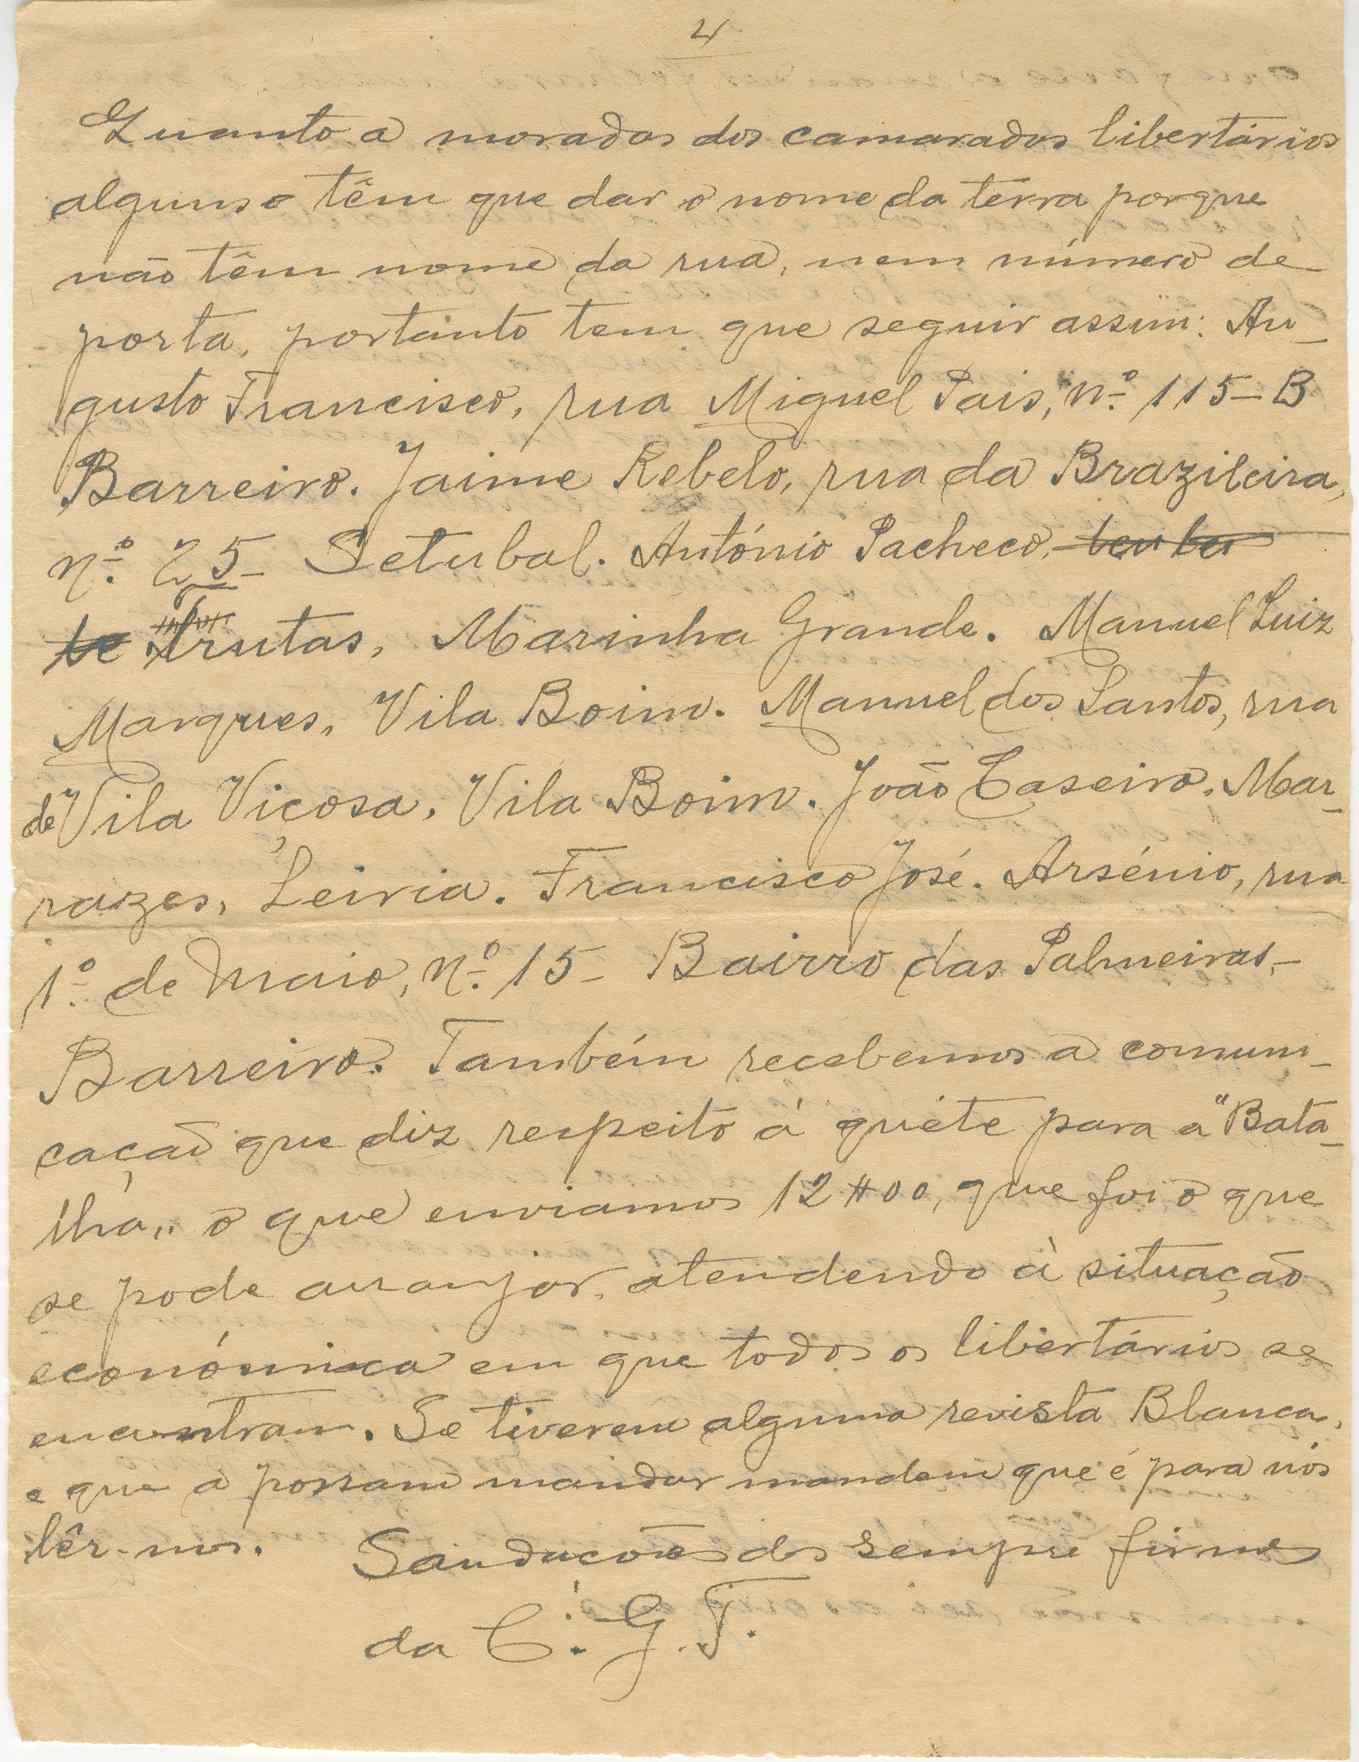 4
Quanto a moradas dos camaradas libertários
alguns têm que dar o nome da terra porque
não têm nome da rua, nem número de
porta, portanto tem que seguir assim: Au-
gusto Francisco, rua Miguel Pais, nº 115-B
Barreiro. Jaime Rebelo, rua da Brazileira,
nº 25- Setubal. António Pacheco,
frutas, Marinha Grande. Manuel Luiz
Marques, Vila Boim. Manuel dos Santos, rua
de Vila Viçosa, Vila Boim. João Caseiro, Mar-
razes, Leiria. Francisco José. Arsénio, rua
1º de Maio, nº 15- Bairro das Palmeiras,-
Barreiro. Também recebemos a comuni-
cação que diz respeito á quéte para a "Bata-
lha,, o que enviamos 12$00, que foi o que
se pode arranjar, atendendo à situação
económica em que todos os libertários se
encontram. Se tiverem alguma revista Blanca,
e que a possam mandar mandem que é para nós
lêr-mos. Saudações dos sempre firmes
da C. G. T.